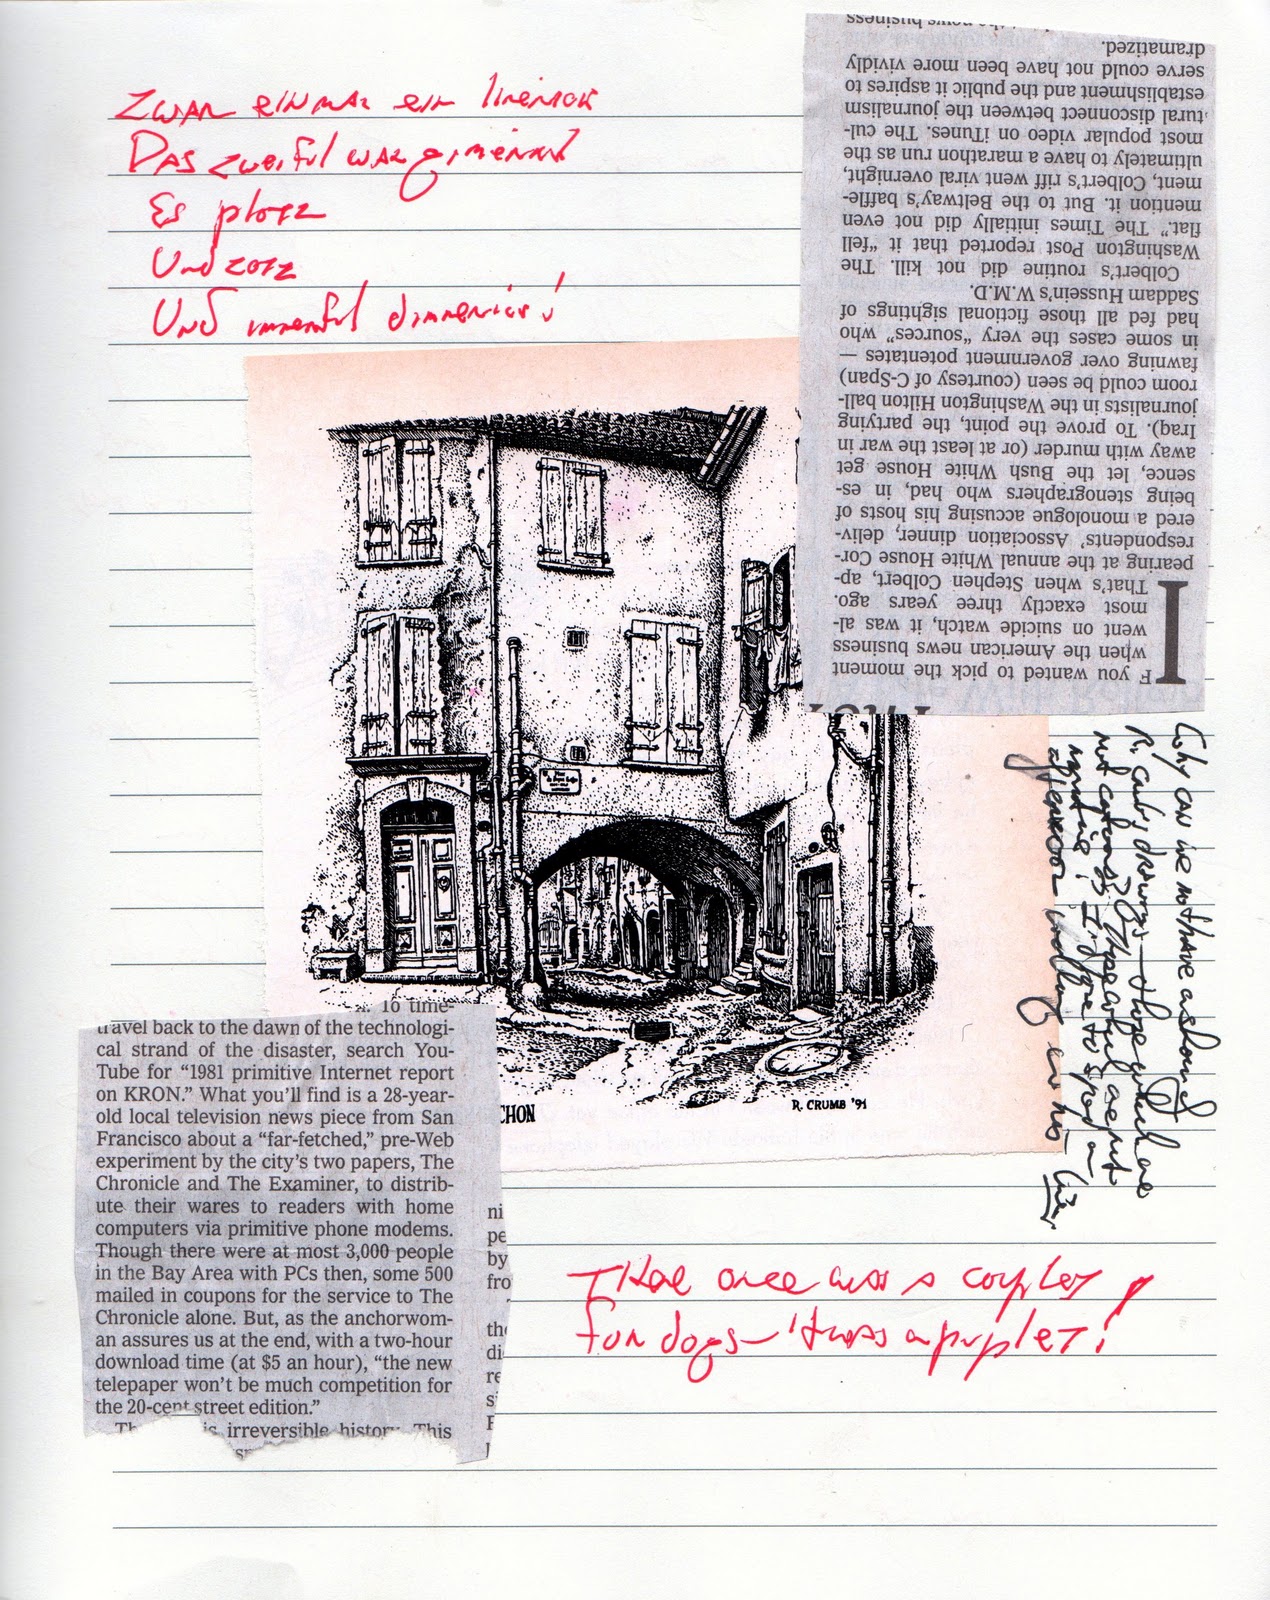 Zwar einmal ein limerick
Das zweiful war
Es plotz
Und zotz
Und
IF you wanted to pick the moment
when the American news business
went on suicide watch, it was al-
most exactly three years ago.
That's when Stephen Colbert, ap-
pearing at the annual White House Cor-
respondents' Association dinner, deliv-
ered a monologue accusing his hosts of
being stenographers who had, in es-
sence, let the Bush White House get
away with murder (or at least the war in
Iraq). To prove the point, the partying
journalists in the Washington Hilton ball-
room could be seen (courtesy of C-Span)
fawning over government potentates —
in some cases the very "sources" who
had fed all those fictional sightings of
Saddam Hussein's W.M.D.
Colbert's routine did not kill. The
Washington Post reported that it "fell
flat." The Times initially did not even
mention it. But to the Beltway's baffle-
ment, Colbert's riff went viral overnight,
ultimately to have a marathon run as the
most popular video on iTunes. The cul-
tural disconnect between the journalism
establishment and the public it aspires to
serve could not have been more vividly
dramatized.
the news business
Why can we not have around
R. Crumb's drawings — those which are
not cartoons?
R. CRUMB '91
CHON
To time-
travel back to the dawn of the technologi-
cal strand of the disaster, search You-
Tube for "1981 primitive Internet report
on KRON." What you'll find is a 28-year-
old local television news piece from San
Francisco about a "far-fetched," pre-Web
experiment by the city's two papers, The
Chronicle and The Examiner, to distrib-
ute their wares to readers with home
computers via primitive phone modems.
Though there were at most 3,000 people
in the Bay Area with PCs then, some 500
mailed in coupons for the service to The
Chronicle alone. But, as the anchorwom-
an assures us at the end, with a two-hour
download time (at $5 an hour), "the new
telepaper won't be much competition for
the 20-cent street edition."
is irreversible history. This
ni
pe
by
fro
the
di
re
si
F
There once was a couplet
For dogs — 'twas a puplet!